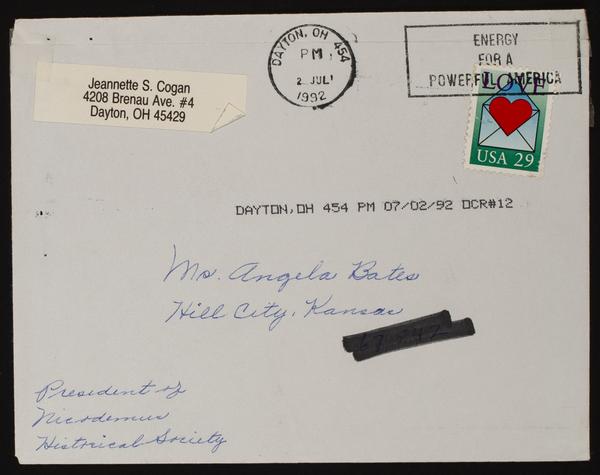 Jeannette S. Cogan
4208 Brenau Ave. #4
Dayton, OH 45429
DAYTON, OH 454
PM
2 JUL
1992
ENERGY
FOR A
POWERFUL AMERICA
LOVE
USA 29
DAYTON,OH 454 PM 07/02/92 OCR#12
Ms. Angela Bates
Hill City, Kansas
President of
Nicodemus
Historical Society